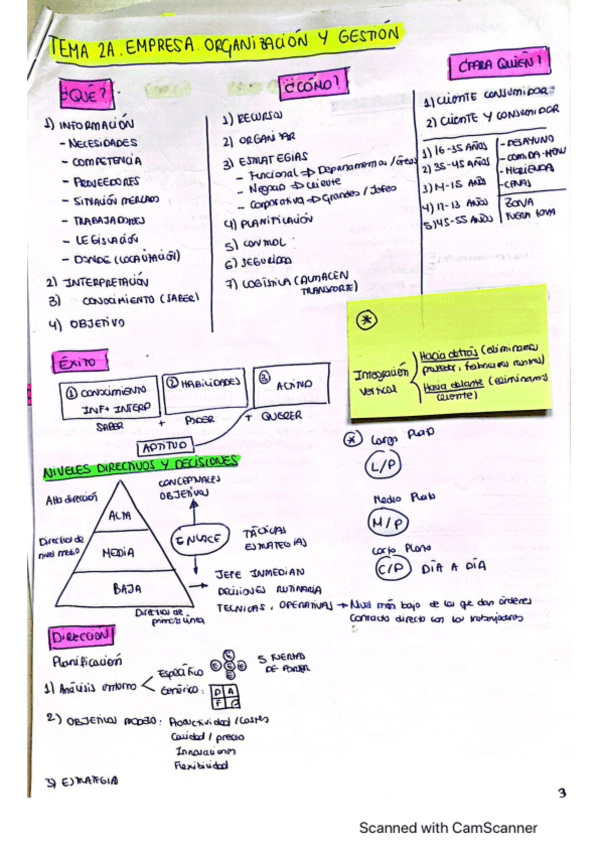 TEMA 2A. EMPRESA. ORGANIZACIÓN Y GESTIÓN
¿QUÉ?
1) INFORMACIÓN
- NECESIDADES
- COMPETENCIA
- PROVEEDORES
- SITUACIÓN MERCADO
- TRABAJADORES
- LEGISLACIÓN
- DONDE (LOCALIZACIÓN)
2) INTERPRETACIÓN
3) CONOCIMIENTO (SABER)
4) OBJETIVO
¿CÓMO?
1) RECURSOS
2) ORGANIZAR
3) ESTRATEGIAS
- Funcional ⇒ Departamentos / áreas
- Negocio ⇒ cliente
- Corporativa ⇒ Grandes / Jefes
4) PLANIFICACIÓN
5) CONTROL
6) SEGURIDAD
7) LOGÍSTICA (ALMACEN
TRANSPORTE)
¿PARA QUIEN?
1) CLIENTE CONSUMIDOR
2) CLIENTE Y CONSUMIDOR
1) 16-35 AÑOS
2) 35-45 AÑOS
3) 14-15 AÑOS
4) 12-13 AÑOS
5) 45-55 AÑOS
- DESAYUNO
- COMIDA-MENÚ
- MERIENDA
- CENAS
ZONA
FUERA ZONA
*
Integración
vertical
Hacia detrás (eliminamos
proveedor,
Hacia delante (eliminamos
cliente)
ÉXITO
① CONOCIMIENTO
INF + INTERP
② HABILIDADES
③ ACTITUD
SABER + PODER + QUERER
APTITUD
NIVELES DIRECTIVOS Y DECISIONES
Alta dirección
Directivos de
nivel medio
ALTA
MEDIA
BAJA
Directivos de
primera línea
CONCEPTUALES
OBJETIVOS
ENLACE
TÁCTICAS
ESTRATEGIAS
JEFE INMEDIATO
DECISIONES RUTINARIA
TECNICAS, OPERATIVAS → Nivel más bajo de los que dan órdenes
Contacto directo con los trabajadores
* Largo Plazo
L/P
Medio Plazo
M/P
Corto Plazo
C/P DÍA A DÍA
DIRECCION
Planificación
1) Análisis entorno
Específico
5 FUERZAS
DE PORTER
Genérico: D A
F O
2) OBJETIVOS MODELO: Productividad / Costes
Calidad / precio
Innovaciones
Flexibilidad
3) ESTRATEGIA
3
Scanned with CamScanner